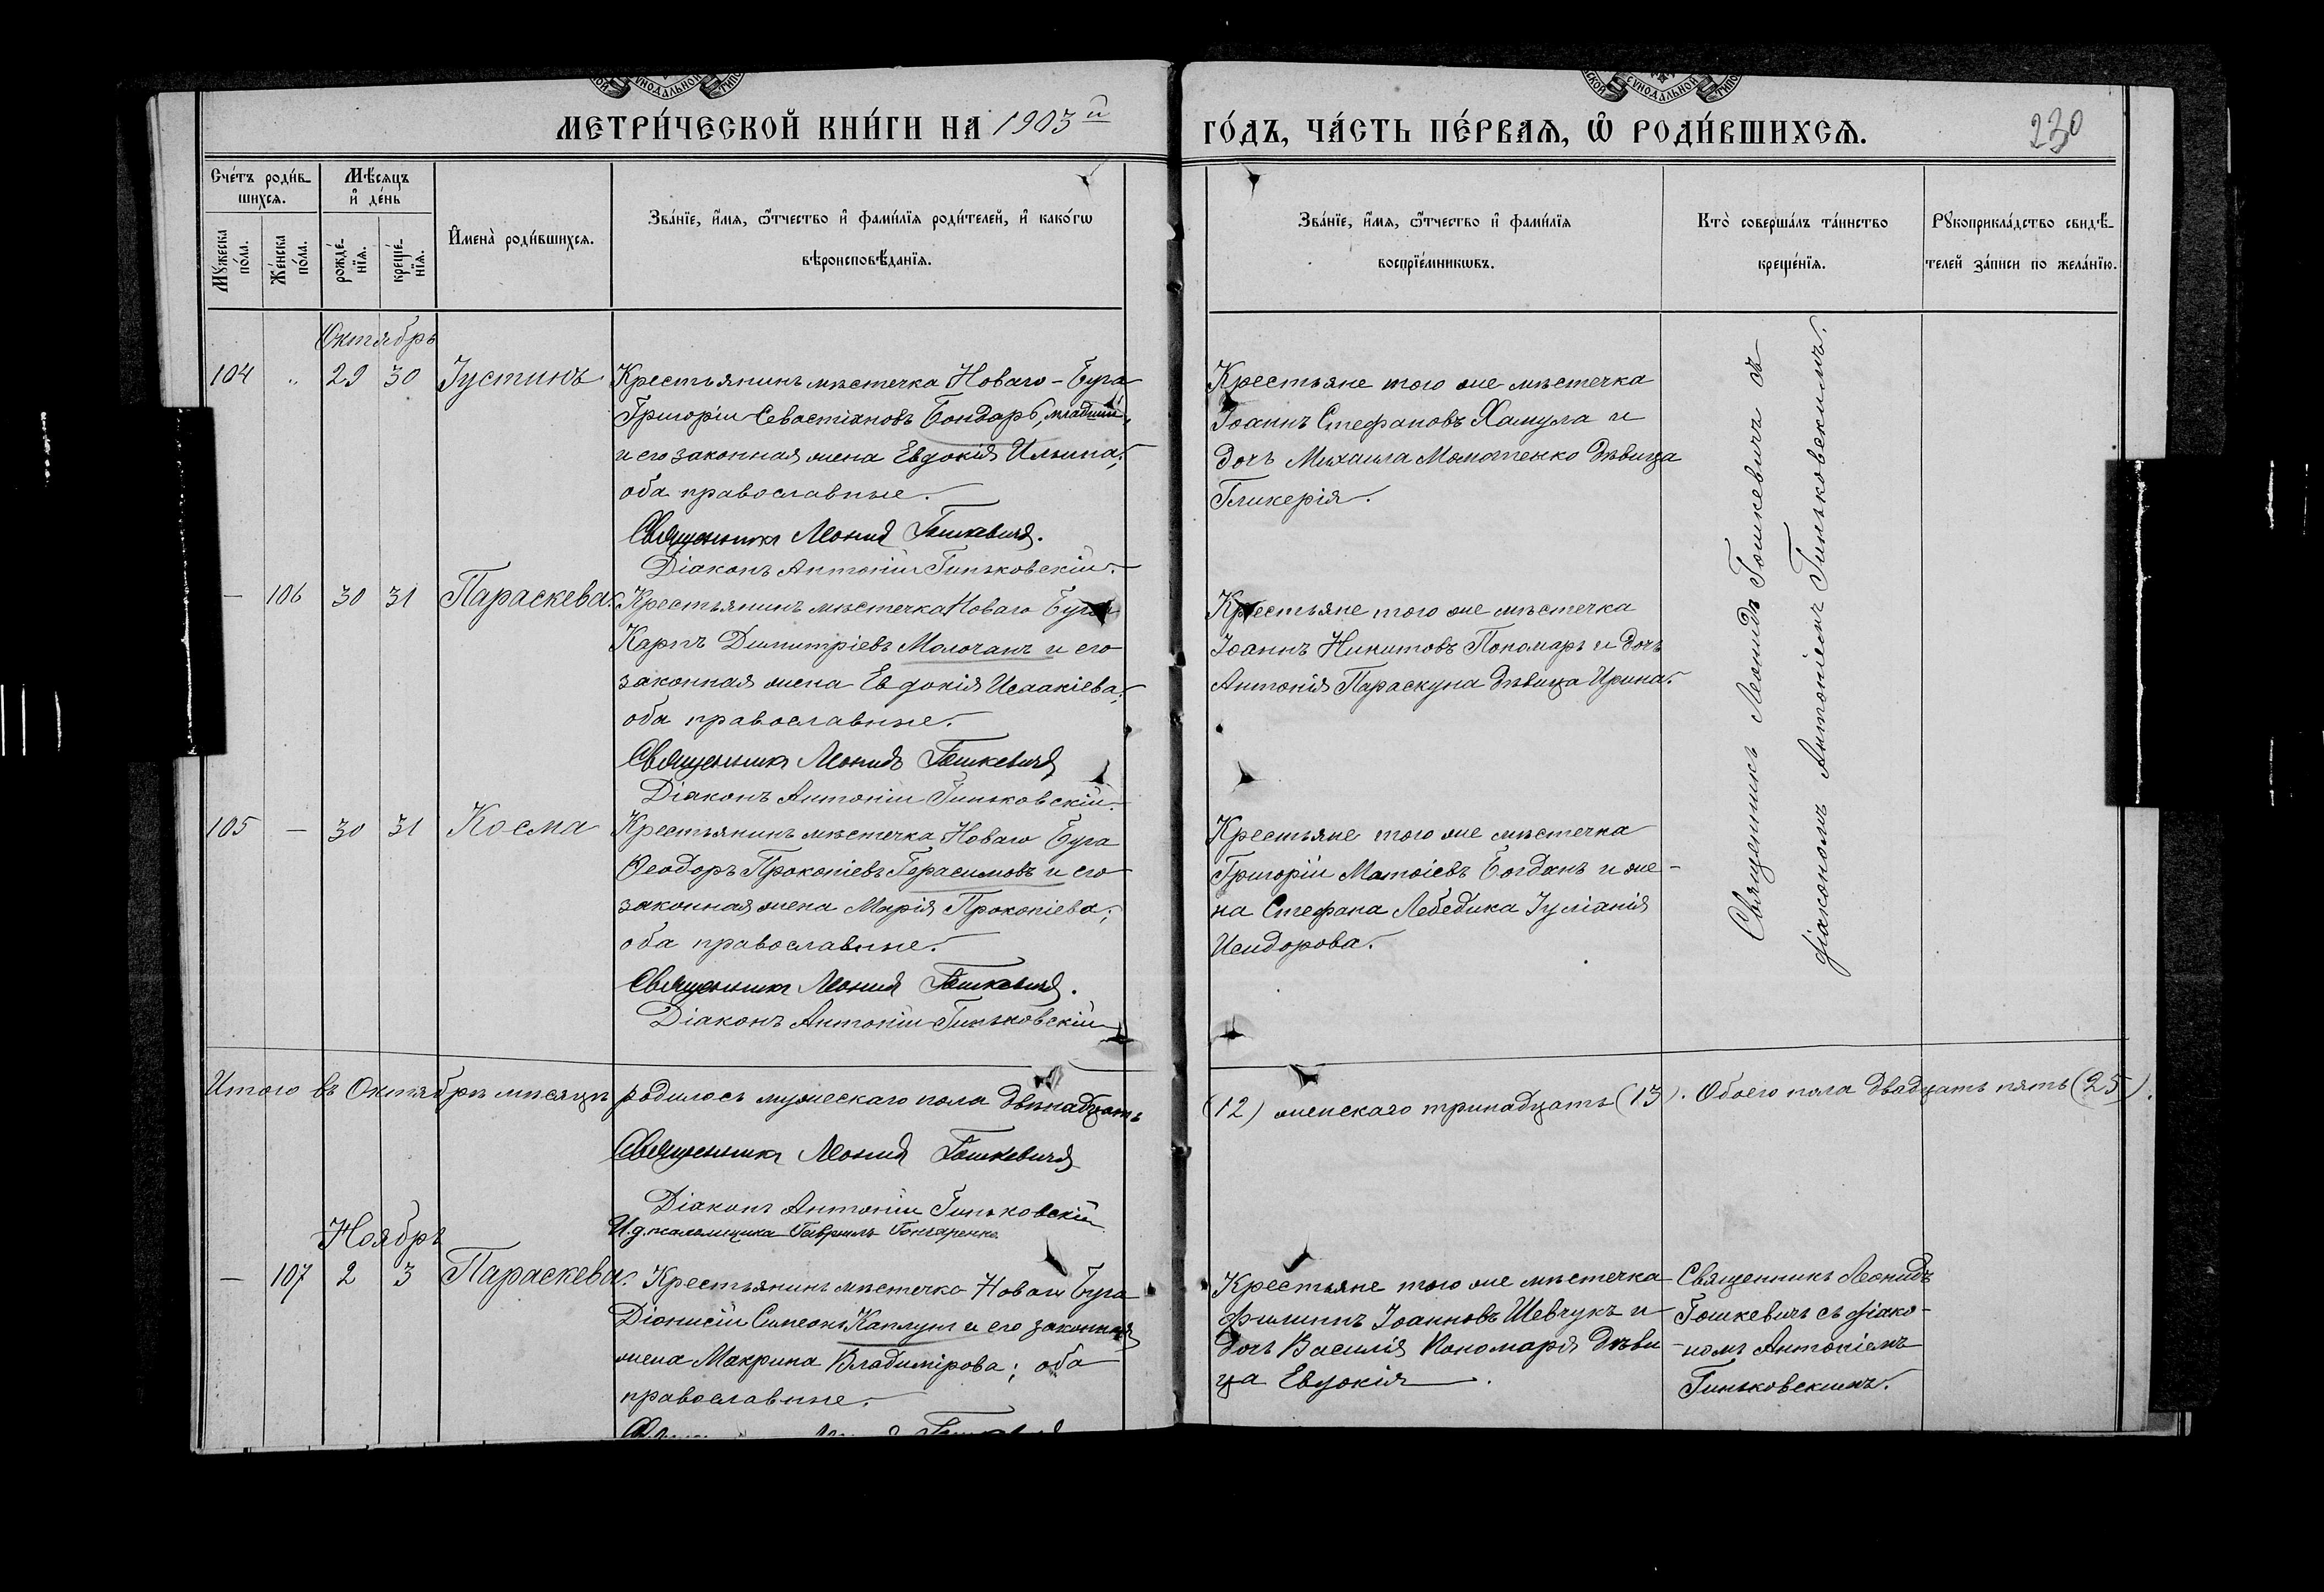 МЕТРИ́ЧЕСКОЙ КНИ́ГИ НА 1903й
ГО́ДЪ, ЧА́СТЬ ПЕ́РВАѦ, Ѡ҆ РОДИ́ВШИХСѦ.
230
Сче́тъ роди́в-
шихсѧ.
Мѣ́сѧцъ
и҆ де́нь
Мꙋ́жеска
по́ла.
Же́нска
по́ла.
рожде́-
нїѧ.
креще́-
нїѧ.
И҆мена̀ роди́вшихсѧ.
Зва́нїе, и҆́мѧ, ѻ҆́тчество и҆ фами́лїѧ роди́телей, и҆ како́гѡ
вѣроисповѣ́данїѧ.
Зва́нїе, и҆́мѧ, ѻ҆́тчество и҆ фами́лїѧ
воспрїе́мникѡвъ.
Кто̀ соверша́лъ та́инство
креще́нїѧ.
Рꙋкоприкла́дство свидѣ́-
телей за́писи по жела́нїю.
Октябрь
104 „ 29 30 Іустинъ
Крестьянинъ мѣстечка Новаго-Буга
Григорій Севастіановъ Бондарь, младшій,
и его законная жена Евдокія Ильина;
оба православные.
Священникъ Леонид Гошкевичъ.
Діаконъ Антоній Гиньковскій.
Крестьяне того же мѣстечка
Іоаннъ Стефановъ Хамула и
дочь Михаила Момотенко дѣвица
Гликерія.
Священникъ Леонидъ Гошкевичъ съ
діакономъ Антоніемъ Гиньковскимъ.
— 106 30 31 Параскева.
Крестьянинъ мѣстечка Новаго Буга
Карпъ Димитріевъ Молочанъ и его
законная жена Евдокія Исаакіева;
оба православные.
Священникъ Леонидъ Гошкевичъ
Діаконъ Антоній Гиньковскій.
Крестьяне того же мѣстечка
Іоаннъ Никитовъ Пономарь и дочь
Антонія Параскуна дѣвица Ирина.
105 — 30 31 Косма
Крестьянинъ мѣстечка Новаго Буга
Ѳеодоръ Прокопіевъ Герасимовъ и его
законная жена Марія Прокопіева;
оба православные.
Священникъ Леонид Гошкевичъ.
Діаконъ Антоній Гиньковскій
Крестьяне того же мѣстечка
Григорій Матѳіевъ Богданъ и же-
на Стефана Лебедика Іуліанія
Исидорова.
Итого въ Октябрѣ мѣсяцѣ родилось мужескаго пола двѣнадцать
(12) женскаго тринадцать (13). Обоего пола двадцать пять (25).
Священникъ Леонид Гошкевичъ
Діаконъ Антоній Гиньковскій
И.д. псаломщика Гавриилъ Гончаренко
Ноябрь
— 107 2 3 Параскева.
Крестьянинъ мѣстечка Новаго Буга
Діонисій Симеонъ Каплунъ и его законная
жена Макрина Владимірова; оба
православные.
Крестьяне того же мѣстечка
Филиппъ Іоанновъ Шевчукъ и
дочь Василія Пономаря дѣви-
ца Евдокія.
Священникъ Леонидъ
Гошкевичъ съ діако-
номъ Антоніемъ
Гиньковскимъ.